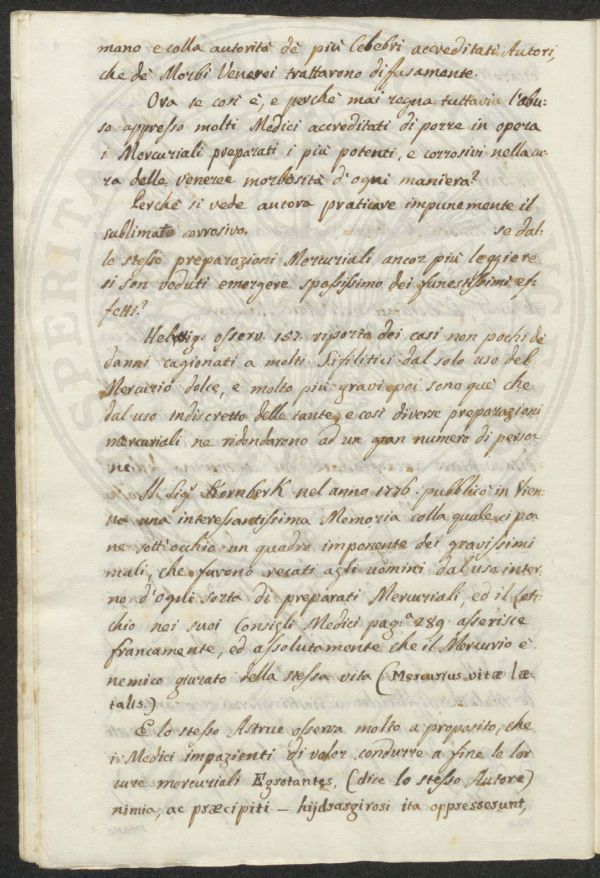 mano e colla autorità dè più Celebri accreditati Autori,
che dè Morbi Venerei trattarono difusamente.
Ora se così è, e perchè mai regna tuttavia l'abu=
so appresso molti Medici accreditati di porre in opera
i Mercuriali preparati i più potenti, e corrosivi nella cu=
ra delle veneree morbosità d'ogni maniera?
Perchè si vede ancora praticare impunemente il
sublimato corrosivo. se dal=
le stesse preparazioni Mercuriali ancor più leggiere
si son veduti emergere spessissimo dei funestissimi ef=
fetti?
Helwig. osserv. 157. riporta dei casi non pochi dè
danni cagionati a molti Sifilitici dal solo uso del
Mercurio dolce, e molto più gravi poi sono què che
dal uso indiscretto delle tante, e così diverse preparazioni
mercuriali ne ridondarono ad un gran numero di perso=
ne.
Il Sig.r Kornberk nel anno 1776. pubblicò in Vien=
na una interessantissima Memoria colla quale ci po=
ne sott'occhio un quadro imponente dei gravissimi
mali, che furono recati agli uomini dal uso inter=
no d'ogni sorta di preparati Mercuriali, ed il
chio nei suoi Consigli Medici pag.a 289. asserisce
francamente, ed assolutamente che il Mercurio è
nemico giurato della stessa vita (Mercurius vitæ læ=
talis.)
E lo stesso Astruc osserva molto a proposito, che
i Medici impazienti di voler condurre a fine le lor
cure mercuriali Egrotantes, (dice lo stesso Autore)
nimia, ac præcipiti — hijdrargirosi ita oppresserunt,